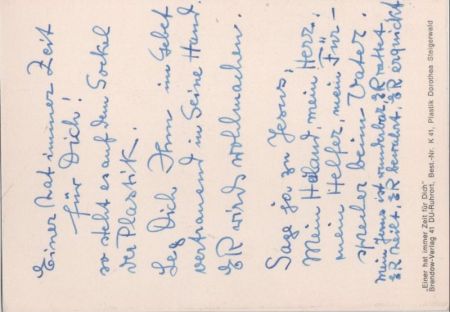 Einer hat immer Zeit
für Dich!
so steht es auf dem Sockel
der Plastik.
Leg Dich Ihm im Gebet
vertrauend in Seine Hand.
ER wird's wohlmachen.
Sage ja zu Jesus,
Mein Heiland, mein Herr,
mein Helfer, mein Für-
sprecher beim Vater.
Mein Jesus ist wunderbar, ER rettet,
ER heilt, ER bewahrt, ER erquickt
"Einer hat immer Zeit für Dich"
Brendow-Verlag 41 DU-Ruhrort, Best.-Nr. K 41, Plastik Dorothea Steigerwald